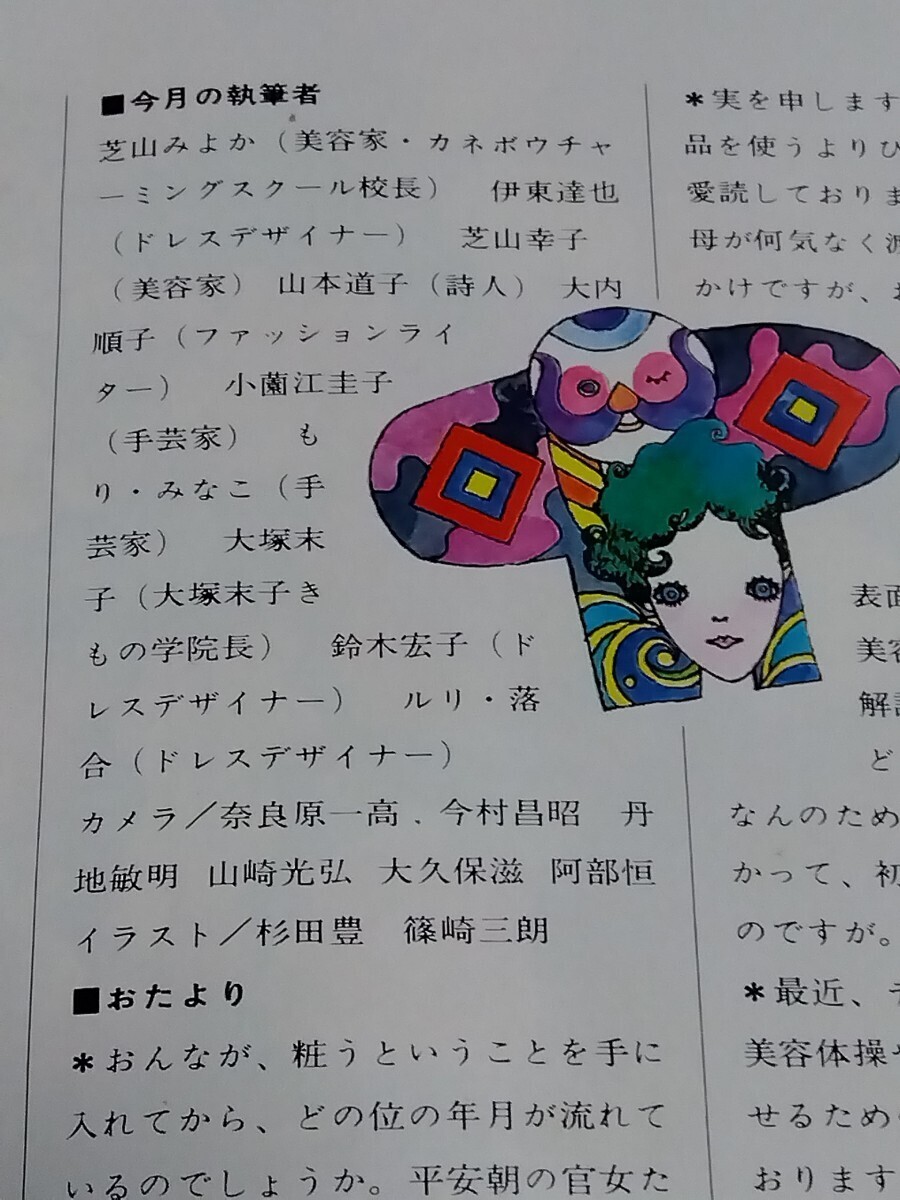 ■今月の執筆者
芝山みよか（美容家・カネボウチャ
ーミングスクール校長）　伊東達也
（ドレスデザイナー）　芝山幸子
（美容家）　山本道子（詩人）　大内
順子（ファッションライ
ター）　小薗江圭子
（手芸家）　も
り・みなこ（手
芸家）　大塚末
子（大塚末子き
もの学院長）　鈴木宏子（ド
レスデザイナー）　ルリ・落
合（ドレスデザイナー）
カメラ／奈良原一高．今村昌昭　丹
地敏明　山崎光弘　大久保滋　阿部恒
イラスト／杉田豊　篠崎三朗
■おたより
＊おんなが、粧うということを手に
入れてから、どの位の年月が流れて
いるのでしょうか。平安朝の官女た
＊実を申します
品を使うよりひ
愛読しておりま
母が何気なく
かけですが、お
表面
美容
解説
ど
なんのため
かって、初
のですが。
＊最近、テ
美容体操や
せるため
おります